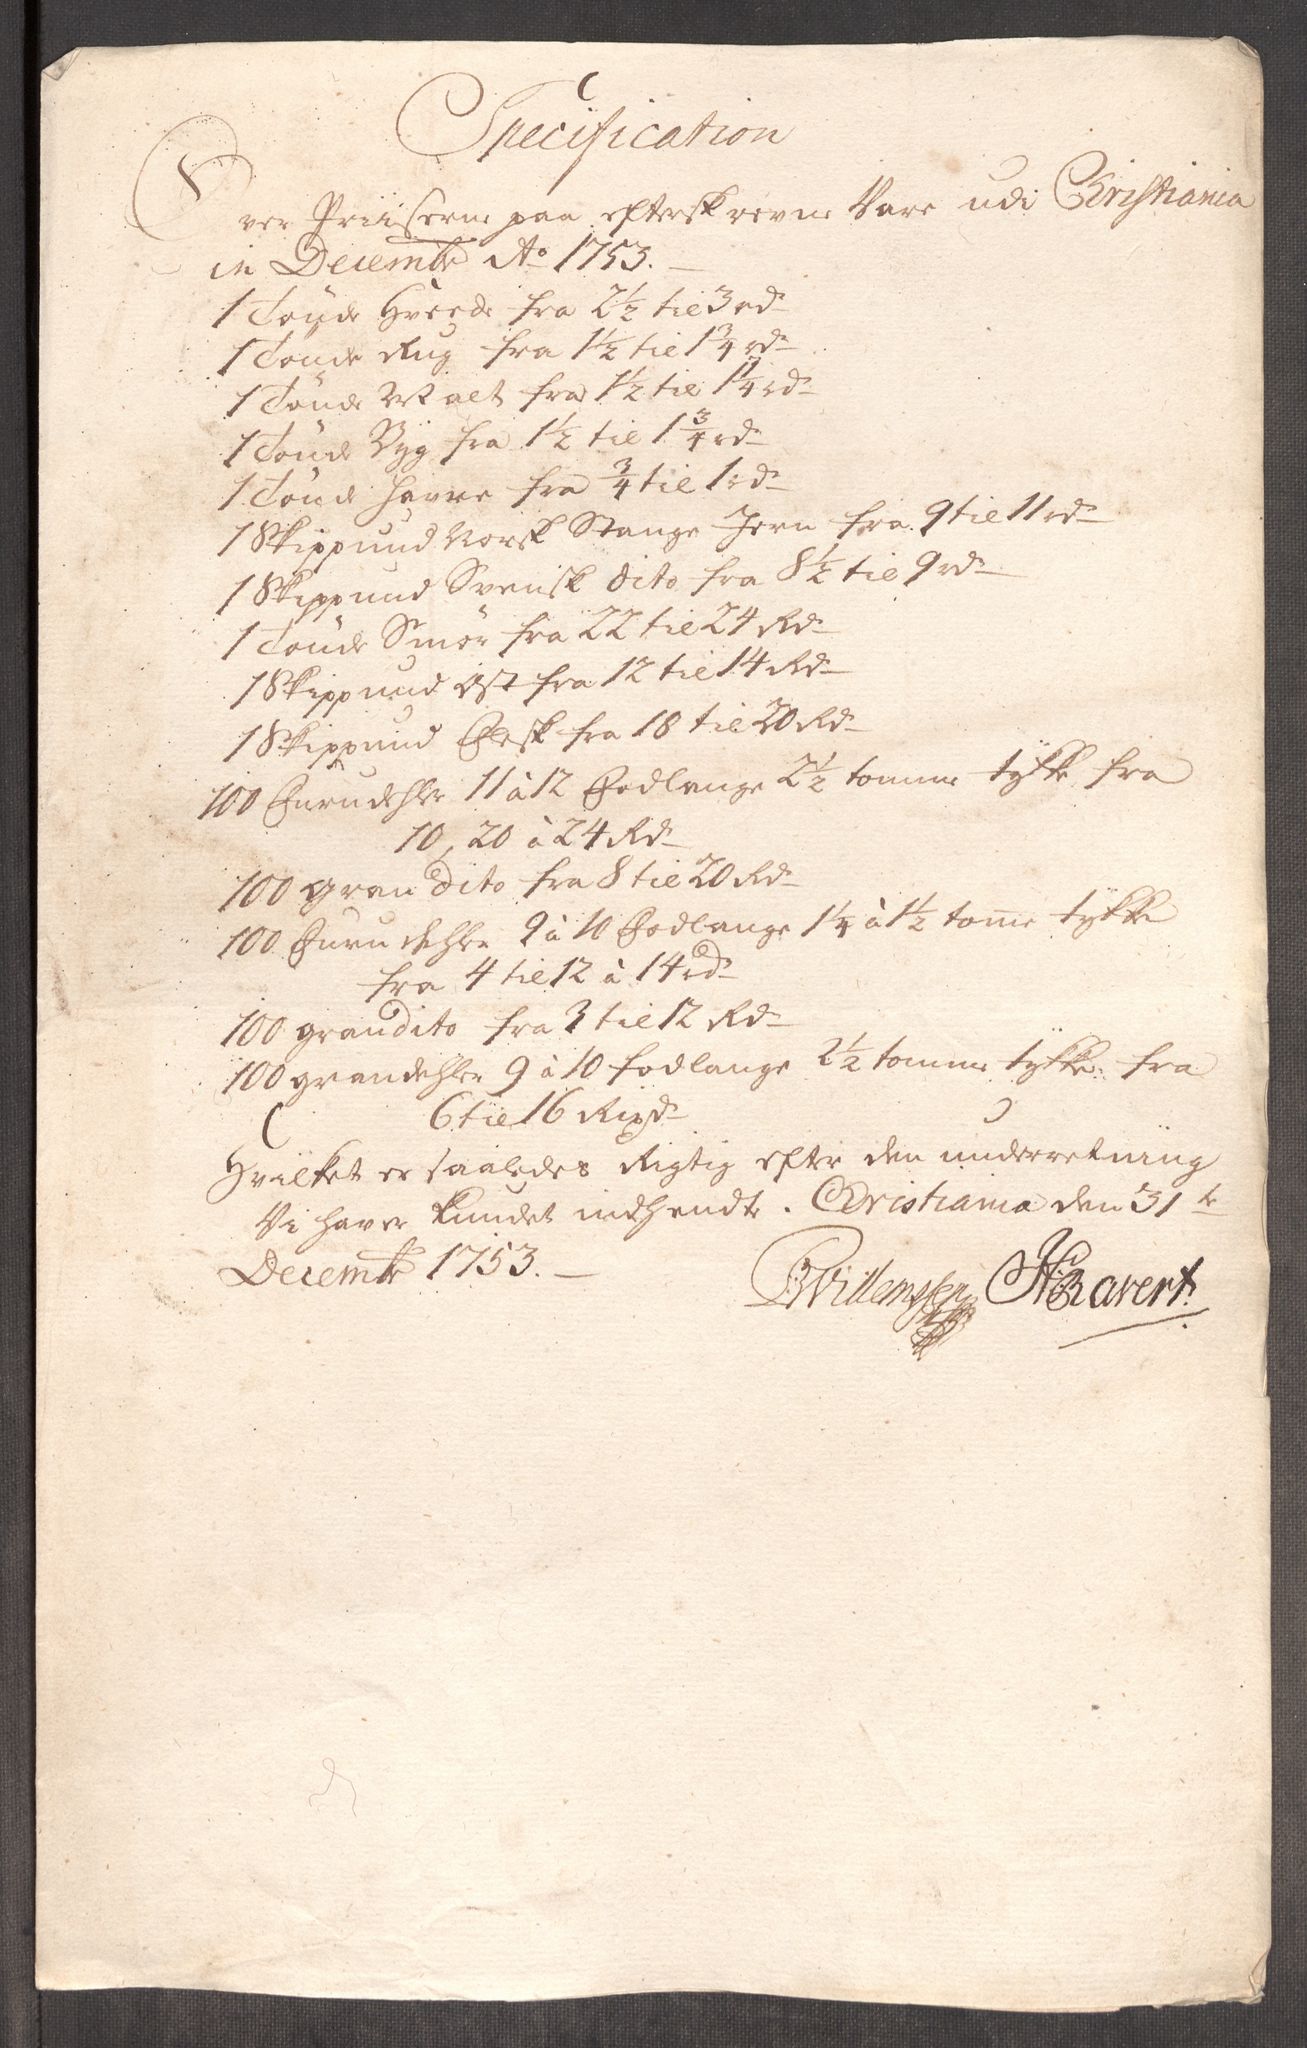 Specification
Over Priiserne paa efterskrevne Vare udi Christiania
in Decembr Ao 1753.
1 Tönde Hvede fra 2½ til 3 rd
1 Tönde Rug fra 1½ til 1¾ rd
1 Tönde Malt fra 1½ til 1¼ rd
1 Tönde Byg fra 1½ til 1¾ rd
1 Tönde havre fra ¾ til 1 rd
1 Skippund Norsk Stange Jern fra 9 til 11 rd
1 Skippund Svensk dito fra 8½ til 9 rd
1 Tönde Smör fra 22 til 24 Rd
1 Skippund Ost fra 12 til 14 Rd
1 Skippund Flesk fra 18 til 20 Rd
100 Furu dehler 11 à 12 Fodlange 2½ tomme tykke fra
10, 20 à 24 Rd
100 gran dito fra 8 til 20 Rd
100 Furu dehler 9 à 10 Fodlange 1¼ à 1½ tome tykke
fra 4 til 12 à 14 rd
100 gran dito fra 3 til 12 Rd
100 grandehler 9 à 10 fodlange 2½ tomme tykke fra
6 til 16 Rixd
Hvilket er saaledes Rigtig efter den underretning
Vi haver kundet indhendte. Christiania den 31te
Decembr 1753.
Willemssen HRavert